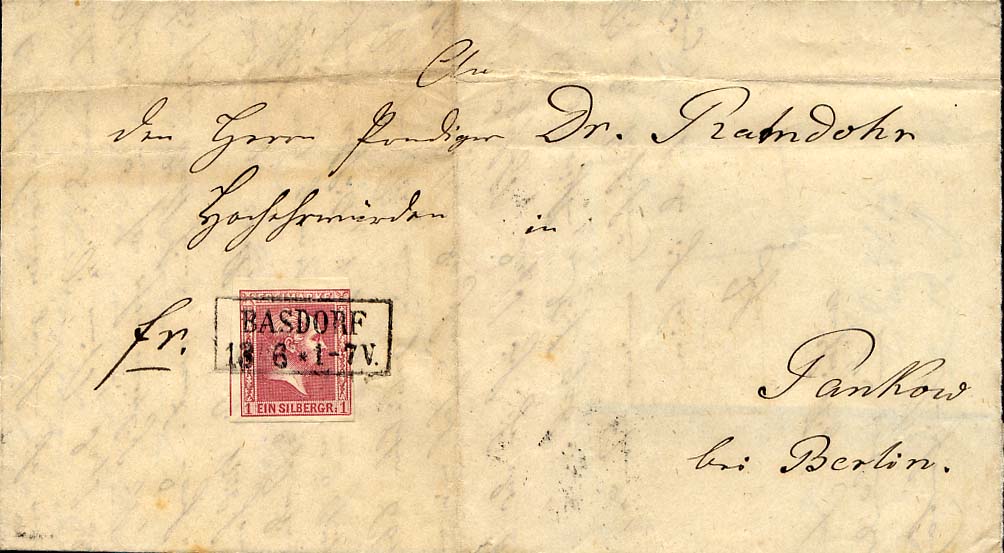 An
den Herrn Prediger Dr. Ramdohr
Hochehrwürden in
fr.
BASDORF
13 6 * 1-7V.
1 EIN SILBERGR. 1
Pankow
bei Berlin.